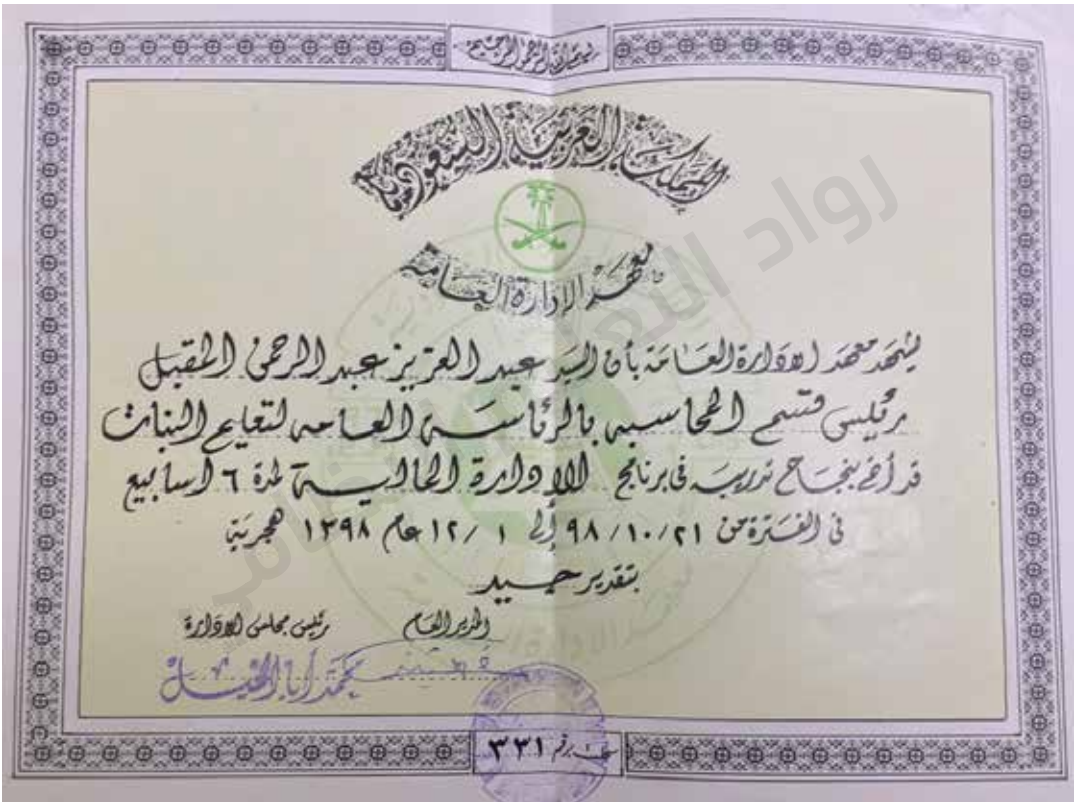 بسم الله الرحمن الرحيم
المملكة العربية السعودية
معهد الإدارة العامة
يشهد معهد الادارة العامة بأن السيد عبد العزيز عبد الرحمن المقبل
رئيس قسم المحاسبه بالرئاسة العامه لتعليم البنات
قد أتم بنجاح تدريبه في برنامج الادارة المالية لمدة ٦ أسابيع
في الفترة من ٢١/١٠/٩٨ إلى ١/١٢ عام ١٣٩٨ هجرية
بتقدير جيد
المدير العام رئيس مجلس الادارة
محمد أبا الخيل
رقم ٣٣١
رواد